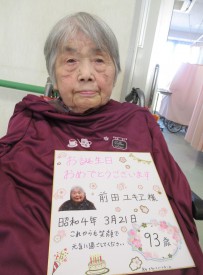 お誕生日
おめでとうございます
前田 ユキエ様
昭和4年 3月21日
これからも笑顔で
元気に過ごしてください
93歳